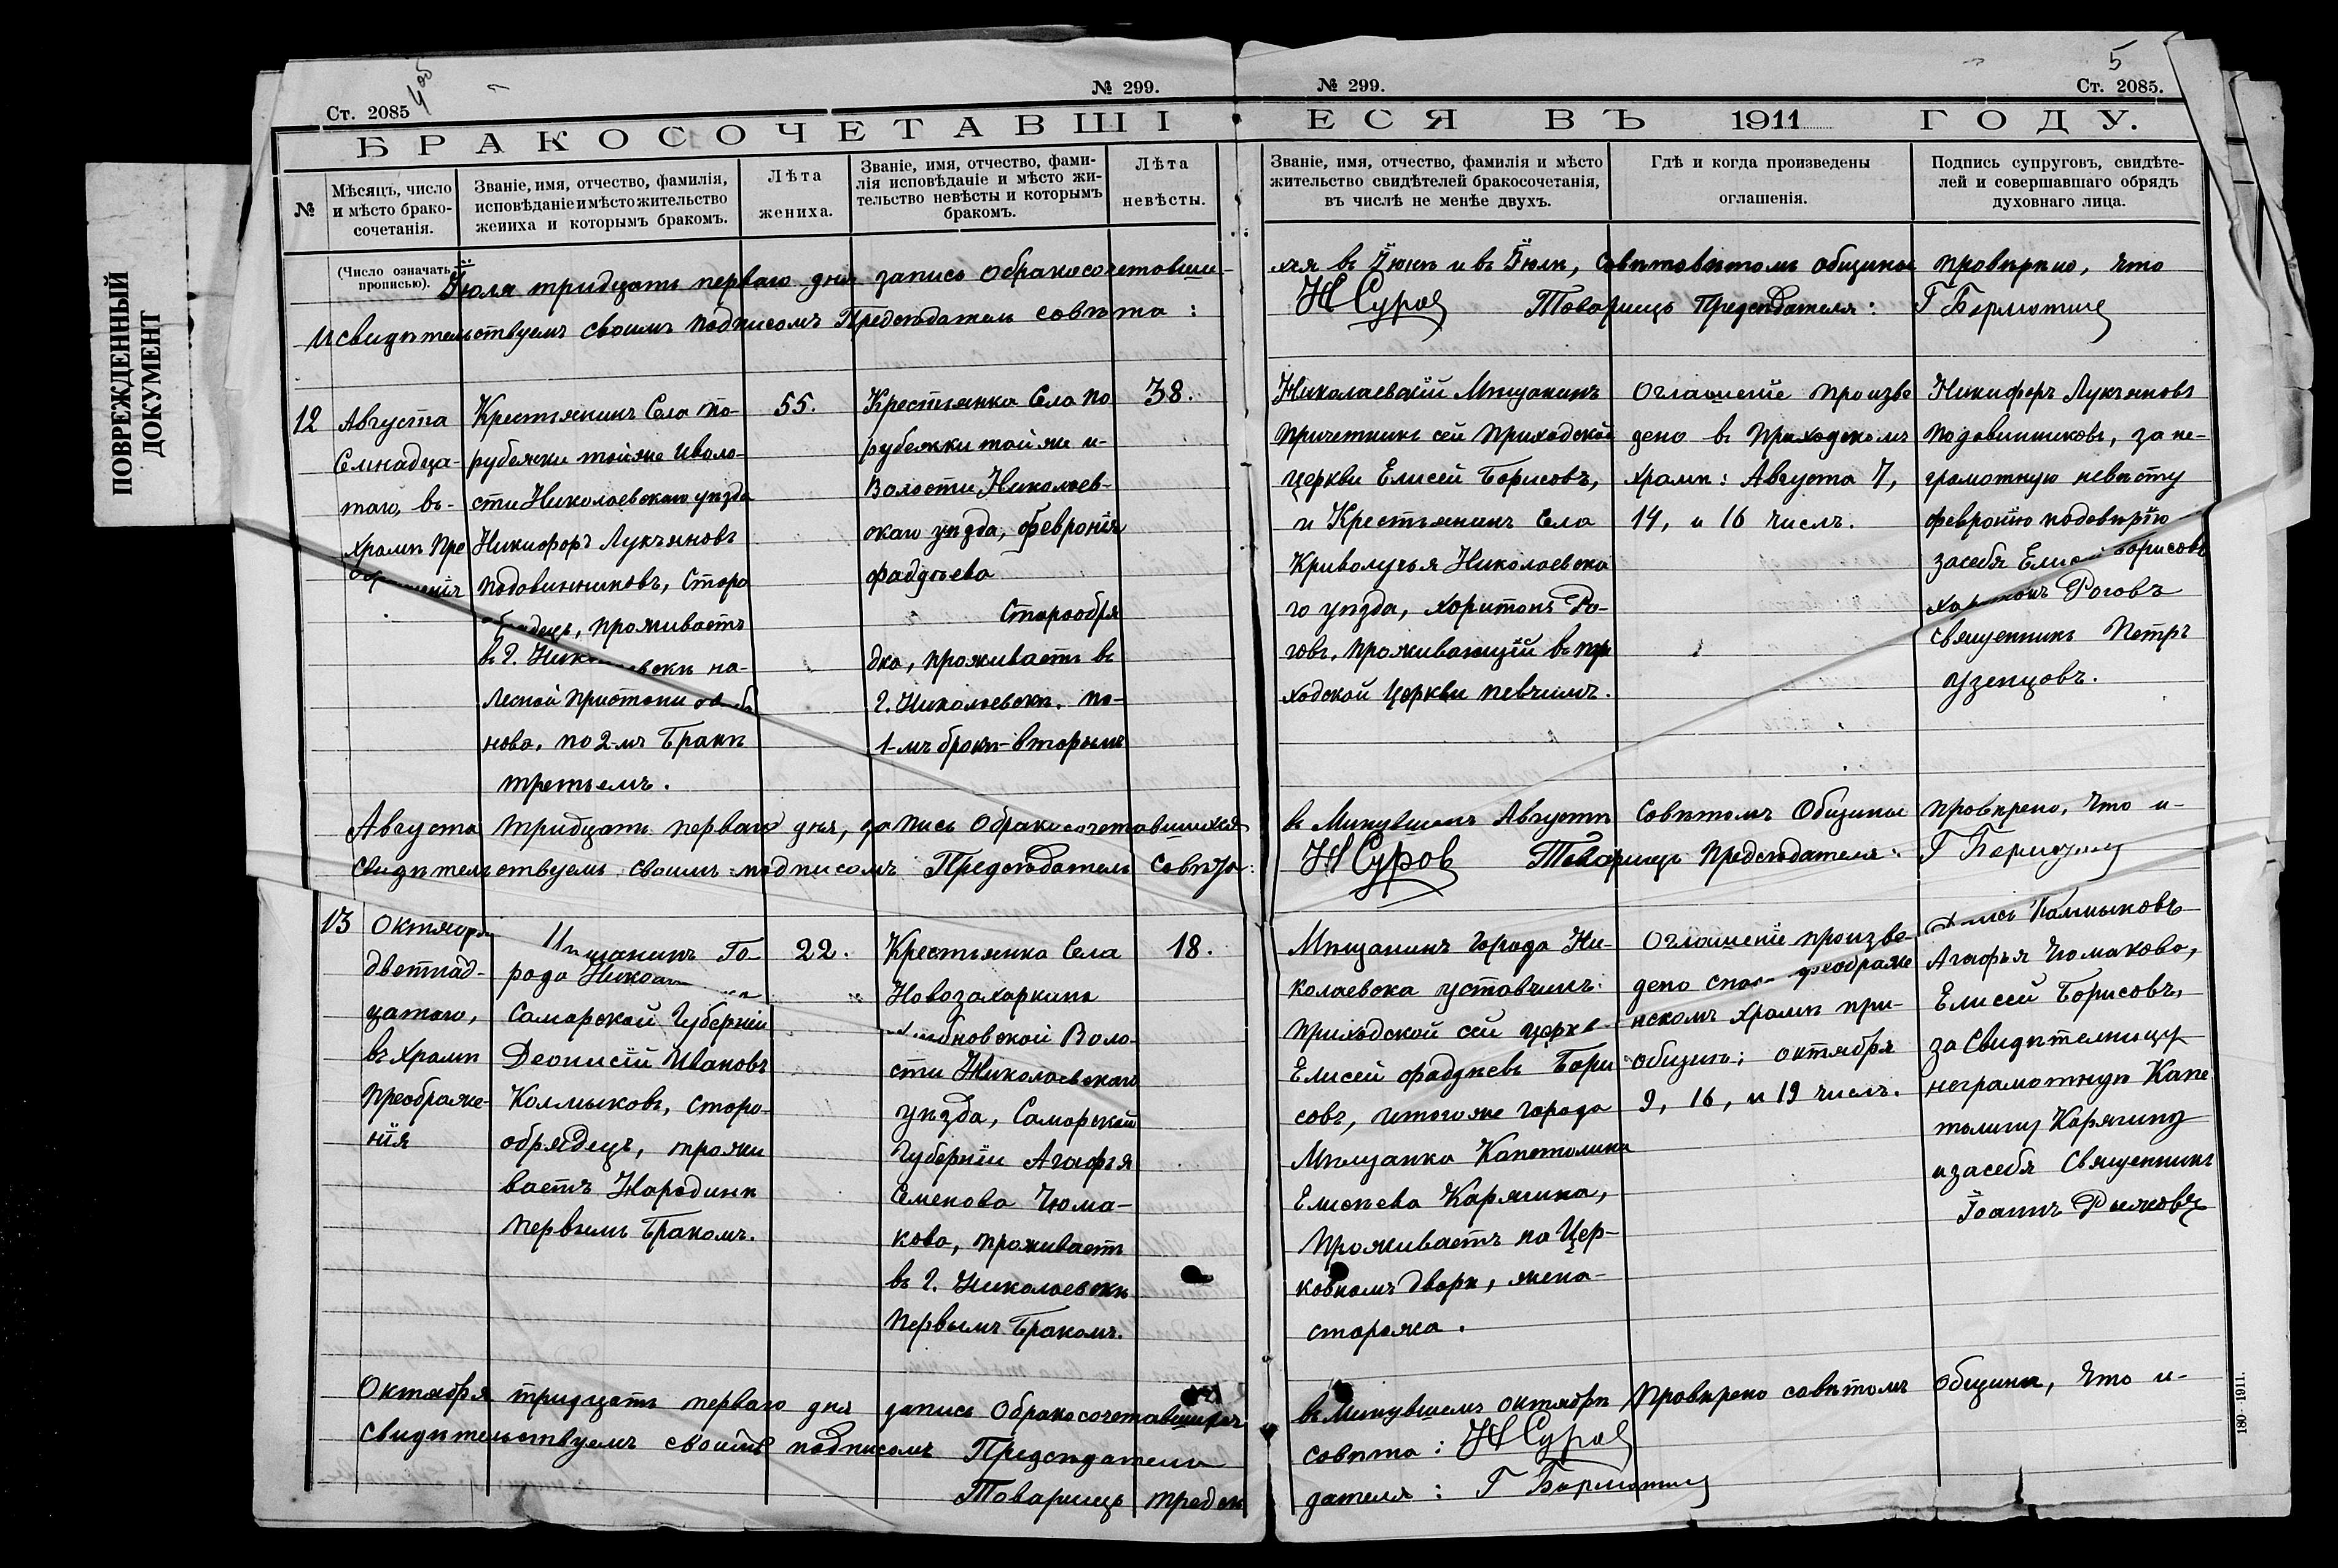 ПОВРЕЖДЕННЫЙ
ДОКУМЕНТ
Ст. 2085
4 об
№ 299.
№ 299.
5
Ст. 2085.
БРАКОСОЧЕТАВШІ
ЕСЯ ВЪ 1911 ГОДУ.
№
Мѣсяцъ, число
и мѣсто брако-
сочетанія.
Званіе, имя, отчество, фамилія,
исповѣданіе и мѣсто жительство
жениха и которымъ бракомъ.
Лѣта
жениха.
Званіе, имя, отчество, фами-
лія исповѣданіе и мѣсто жи-
тельство невѣсты и которымъ
бракомъ.
Лѣта
невѣсты.
Званіе, имя, отчество, фамилія и мѣсто
жительство свидѣтелей бракосочетанія,
въ числѣ не менѣе двухъ.
Гдѣ и когда произведены
оглашенія.
Подпись супруговъ, свидѣте-
лей и совершавшаго обрядъ
духовнаго лица.
(Число означать
прописью).
Іюля тридцать перваго дня запись обракосочетавши-
исвидѣтельствуемъ своимъ подписомъ Предсѣдатель совѣта:
въ Іюнѣ и въ Іюлѣ, общины провѣрено, что
Н Суровъ Товарищъ Предсѣдателя: Г Бормотинъ
12
Августа
Семнадца-
таго, въ-
храмѣ Пре
ображенія
Крестьянинъ Села По-
рубежки тойже иволо-
сти Николаевскаго уѣзда
Никифоръ Лукъяновъ
Подовинниковъ, Старо
обрядецъ, проживаетъ
в г. Николаевскѣ на-
Лесной Пристани
нова, по 2-мъ Бракѣ
третьемъ.
55.
Крестьянка Села По
рубежки тойже и-
Волости Николаев-
скаго уѣзда, Февронія
Фаддѣева
Старообря
дка, проживаетъ въ
г. Николаевскѣ. по-
1-мъ бракѣ-вторымъ
38.
Николаевскій Мѣщанинъ
Причетникъ сей Приходской
церкви Елисей Борисовъ,
и Крестьянинъ Села
Криволучья Николаевска
го уѣзда, Харитонъ Ро-
говъ, проживающій въ при
ходской Церкви певчимъ.
Оглашеніе произве
дено въ Приходскомъ
храмѣ: Августа 7,
14, и 16 числъ.
Никифоръ Лукъяновъ
Подовинниковъ, за не-
грамотную невѣсту
Февронію подовѣрію
засебя Елисей Борисовъ
Харитонъ Роговъ
Священникъ Петръ
Узенцовъ.
Августа тридцать перваго дня, запись обракосочетавшихся
свидѣтельствуемъ своимъ подписомъ Предсѣдатель Совѣта:
в Минувшемъ Августѣ Совѣтомъ Общины провѣрено, что и-
Н Суровъ Товарищъ Предсѣдателя: Г Бормотинъ
13
Октября
Деонисій Ивановъ
двѣтнад-
цатого,
въ Храмѣ
Преображе-
нія
Мѣщанинъ Го-
рода Николаевска
Самарской Губерніи
Калмыковъ, старо-
обрядецъ, прожи
ваетъ Народинѣ
Первымъ Бракомъ.
22.
Крестьянка Села
Новозахаркина
Воло-
сти Николаевскаго
уѣзда, Самарской
Губерніи Агафья
Семенова Чюма-
кова, проживаетъ
въ г. Николаевскѣ
Первымъ Бракомъ.
18.
Мѣщанинъ города Ни-
колаевска уставчикъ
приходской сей церкв
Елисей Фаддѣевъ Бори
совъ, итогоже города
Мѣщанка Капетолина
Елисѣева Карягина,
Проживаетъ на Цер-
ковномъ дворѣ, жена-
сторожа.
Оглашеніе произве-
дено Спасо преображе
нскомъ храмѣ при-
общинѣ; октября
9, 16, и 19 числъ.
Калмыковъ
Агафья Чюмакова,
Елисей Борисовъ,
за Свидѣтельницу
неграмотную Капе
толину Карягину
изасебя Священникъ
Іоаннъ Рыжковъ
Октября тридцать перваго дня запись обракосочетавшихся
свидѣтельствуемъ своимъ подписомъ Предсѣдатели
Товарищъ предсѣ
въ Минувшемъ октябрѣ провѣрено совѣтомъ общины, что и-
совѣта: Н Суровъ
дателя: Г Бормотинъ
180-1911.